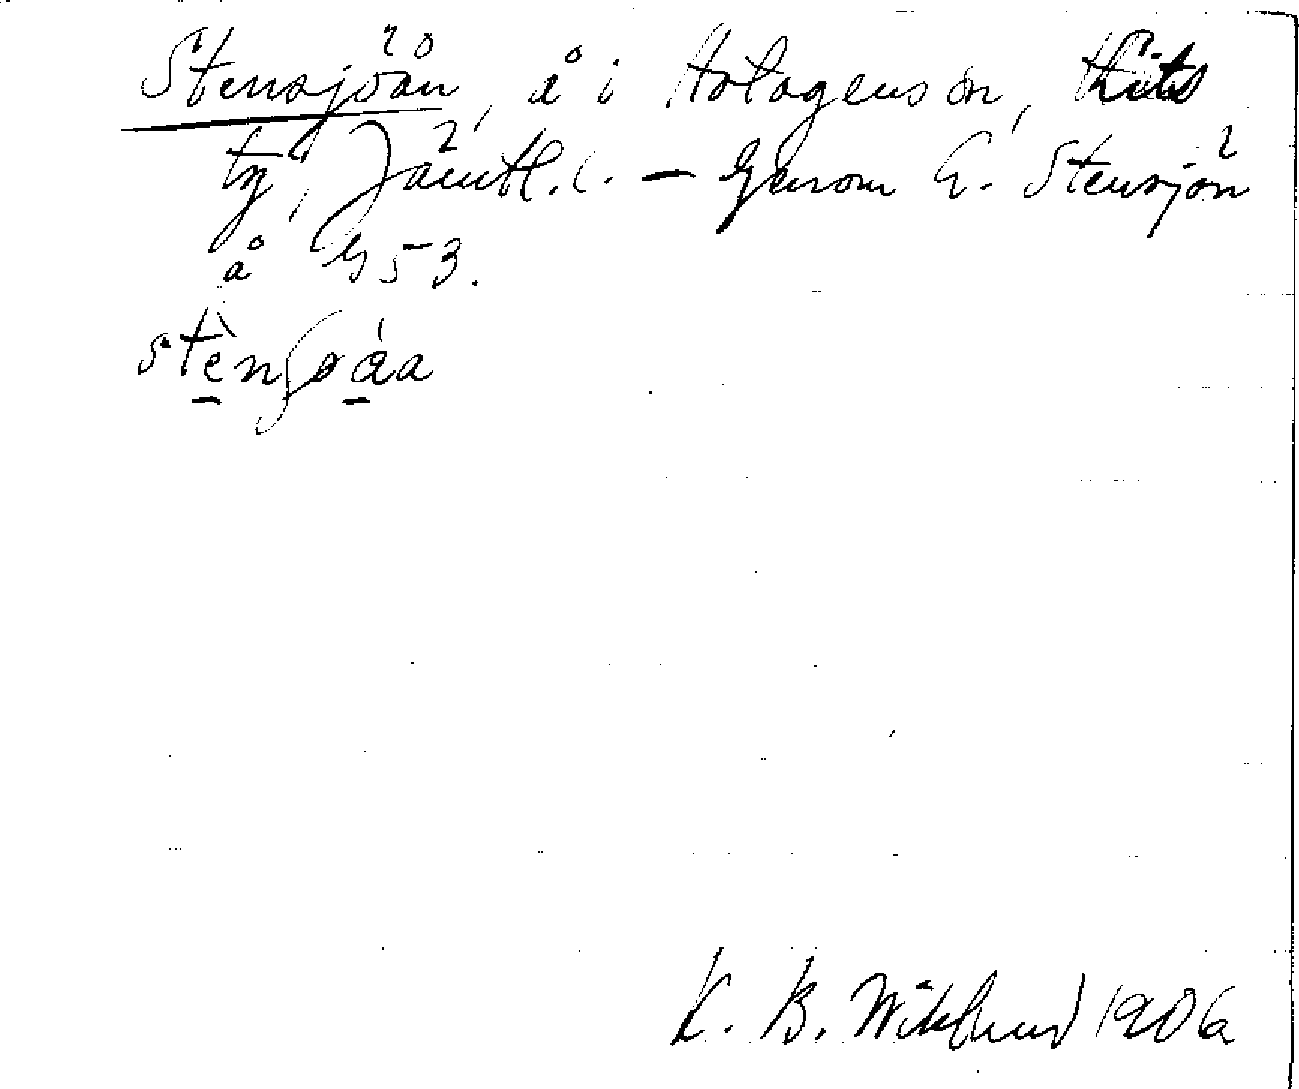 Stensjöån, å i Hotagens sn,
tg, Jämtl. l. — Genom G. Stensjön
å G 53.
stènʃøáa
K. B. Wiklund 1906